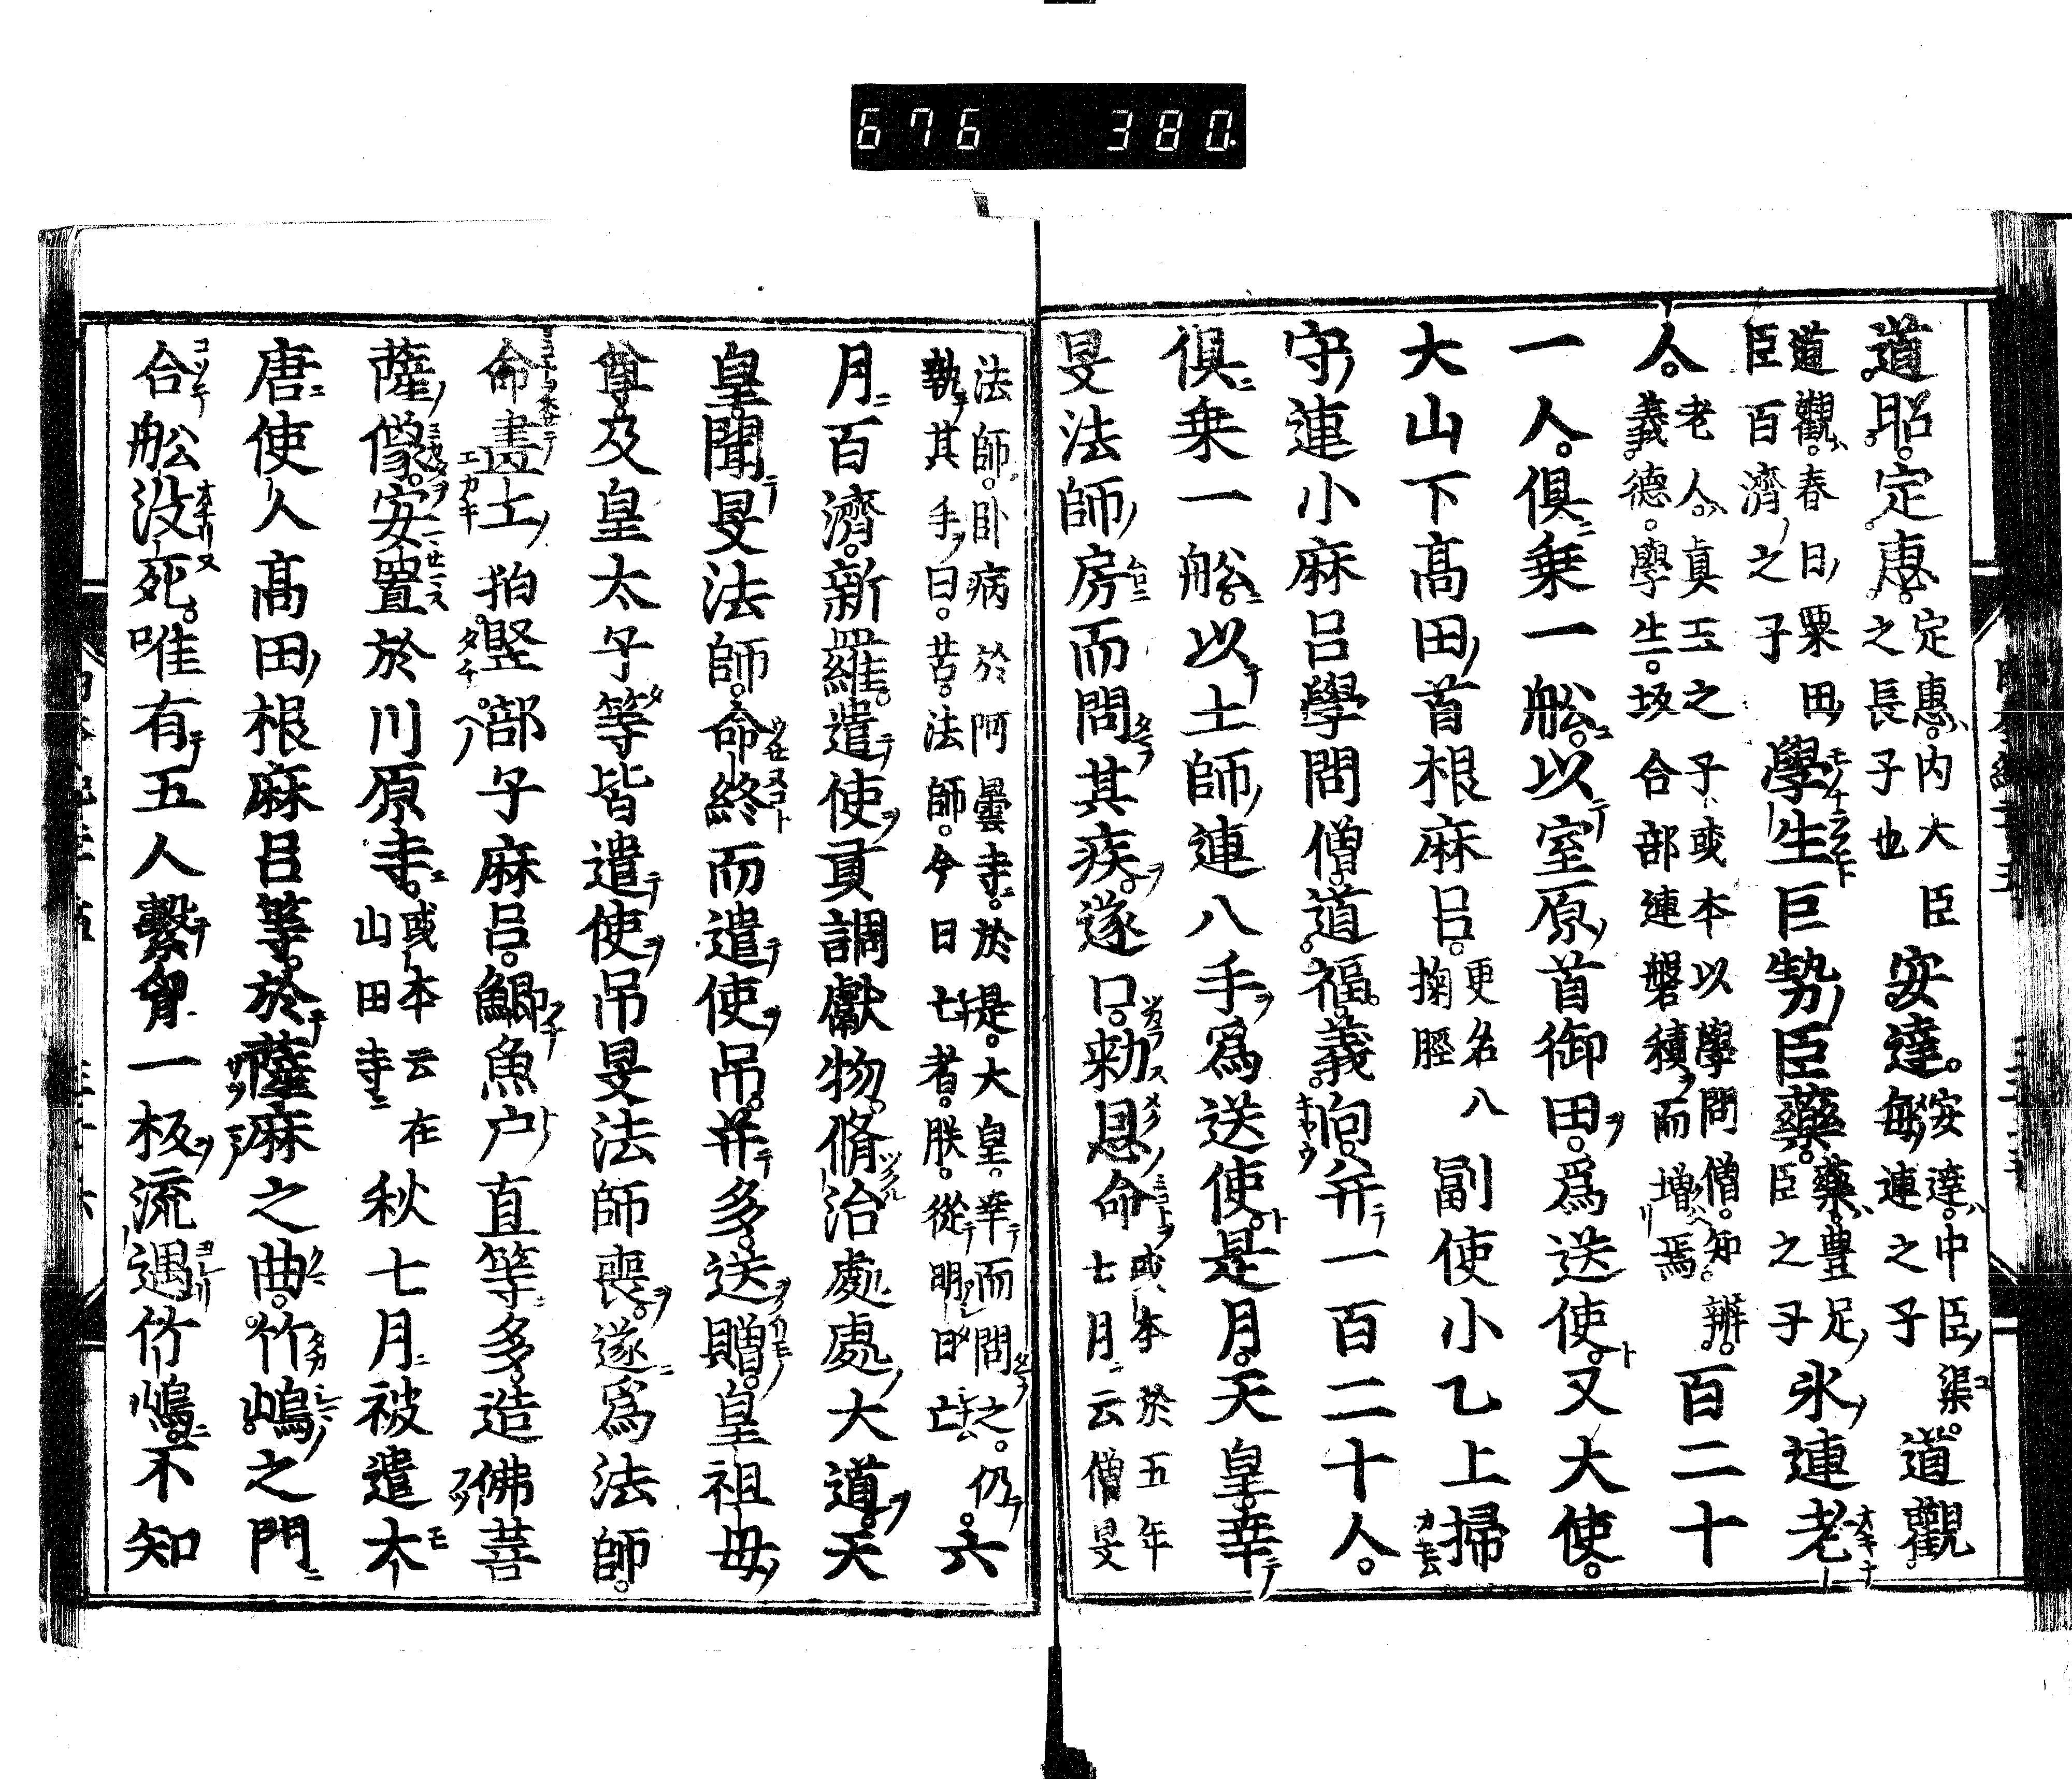 676 380
道昭定惠定惠内大臣之長子也安達安達中臣渠毎連之子道觀
道觀春日粟田臣百濟之子學生巨勢臣藥藥豊足臣之子氷連老
人老人眞玉之子或本以學問僧知辨義德學生坂合部連磐積而增焉百二十
一人俱乗一舩以室原首御田爲送使又大使
大山下髙田首根麻呂更名八掬脛副使小乙上掃
守連小麻呂學問僧道福義向并一百二十人
俱乗一舩以土師連八手爲送使是月天皇幸
旻法師房而問其疾遂口勅恩命或本於五年七月云僧旻
法師臥病於阿曇寺於是大皇幸而問之仍執其手曰若法師今日亡者朕從明日亡六
月百濟新羅遣使貢調獻物脩治處處大道天
皇聞旻法師命終而遣使吊并多送贈皇祖母
尊及皇太子等皆遣使吊旻法師喪遂爲法師
命畫工狛竪部子麻呂鯽魚戸直等多造佛菩
薩像安置於川原寺或本云在山田寺秋七月被遣大
唐使人髙田根麻呂等於薩麻之曲竹嶋之門
合舩没死唯有五人繫胷一板流遇竹嶋不知